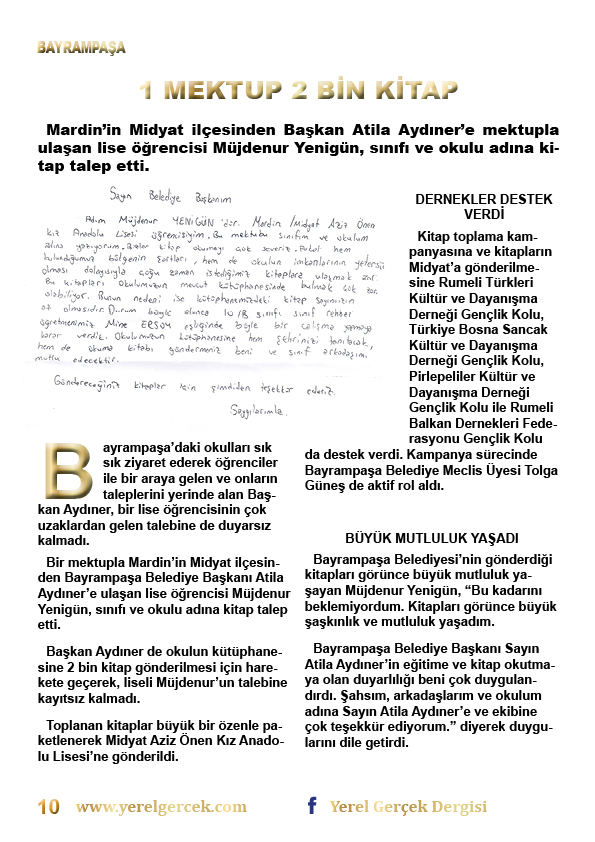 BAYRAMPAŞA
1 MEKTUP 2 BİN KİTAP
Mardin’in Midyat ilçesinden Başkan Atila Aydıner’e mektupla
ulaşan lise öğrencisi Müjdenur Yenigün, sınıfı ve okulu adına ki-
tap talep etti.
Sayın Belediye Başkanım
Adım Müjdenur YENİGÜN'dür. Mardin /Midyat Aziz Önen
Kız Anadolu Lisesi öğrencisiyim. Bu mektubu sınıfım ve okulum
adına yazıyorum. Bizler kitap okumayı çok severiz. Fakat hem
bulunduğumuz bölgenin şartları, hem de okulun imkanlarının yetersiz
olması dolayısıyla çoğu zaman istediğimiz kitaplara ulaşmak zor.
Bu kitapları okulumuzun mevcut kütüphanesinde bulmak çok zor
olabiliyor. Bunun nedeni ise kütüphanemizdeki kitap sayımızın
az olmasıdır. Durum böyle olunca 10/B sınıfı sınıf rehber
öğretmenimiz Mine ERSOY eşliğinde böyle bir çalışma yapmaya
karar verdik. Okulumuzun kütüphanesine hem şehrinizi tanıtacak,
hem de okuma kitabı göndermeniz beni ve sınıf arkadaşımı
mutlu edecektir.
Göndereceğiniz kitaplar için şimdiden teşekkür ederiz.
Saygılarımla.
DERNEKLER DESTEK
VERDİ
Kitap toplama kam-
panyasına ve kitapların
Midyat’a gönderilme-
sine Rumeli Türkleri
Kültür ve Dayanışma
Derneği Gençlik Kolu,
Türkiye Bosna Sancak
Kültür ve Dayanışma
Derneği Gençlik Kolu,
Pirlepeliler Kültür ve
Dayanışma Derneği
Gençlik Kolu ile Rumeli
Balkan Dernekleri Fede-
rasyonu Gençlik Kolu
da destek verdi. Kampanya sürecinde
Bayrampaşa Belediye Meclis Üyesi Tolga
Güneş de aktif rol aldı.
Bayrampaşa’daki okulları sık
sık ziyaret ederek öğrenciler
ile bir araya gelen ve onların
taleplerini yerinde alan Baş-
kan Aydıner, bir lise öğrencisinin çok
uzaklardan gelen talebine de duyarsız
kalmadı.
Bir mektupla Mardin’in Midyat ilçesin-
den Bayrampaşa Belediye Başkanı Atila
Aydıner’e ulaşan lise öğrencisi Müjdenur
Yenigün, sınıfı ve okulu adına kitap talep
etti.
Başkan Aydıner de okulun kütüphane-
sine 2 bin kitap gönderilmesi için hare-
kete geçerek, liseli Müjdenur’un talebine
kayıtsız kalmadı.
Toplanan kitaplar büyük bir özenle pa-
ketlenerek Midyat Aziz Önen Kız Anado-
lu Lisesi’ne gönderildi.
BÜYÜK MUTLULUK YAŞADI
Bayrampaşa Belediyesi’nin gönderdiği
kitapları görünce büyük mutluluk ya-
şayan Müjdenur Yenigün, “Bu kadarını
beklemiyordum. Kitapları görünce büyük
şaşkınlık ve mutluluk yaşadım.
Bayrampaşa Belediye Başkanı Sayın
Atila Aydıner’in eğitime ve kitap okutma-
ya olan duyarlılığı beni çok duygulan-
dırdı. Şahsım, arkadaşlarım ve okulum
adına Sayın Atila Aydıner’e ve ekibine
çok teşekkür ediyorum.” diyerek duygu-
larını dile getirdi.
10 www.yerelgercek.com
f Yerel Gerçek Dergisi